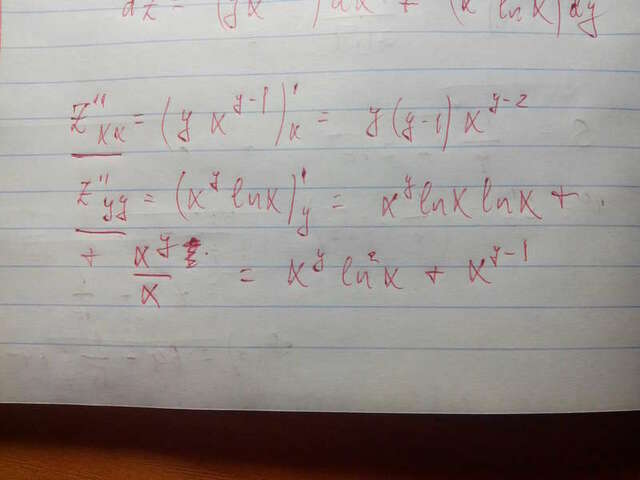 dz = (yx ) dx + (x ln x) dy
z''xx = (y x^(y-1))'x = y(y-1) x^(y-2)
z''yy = (x^y ln x)'y = x^y ln x ln x +
+ x^y/x = x^y ln²x + x^(y-1)